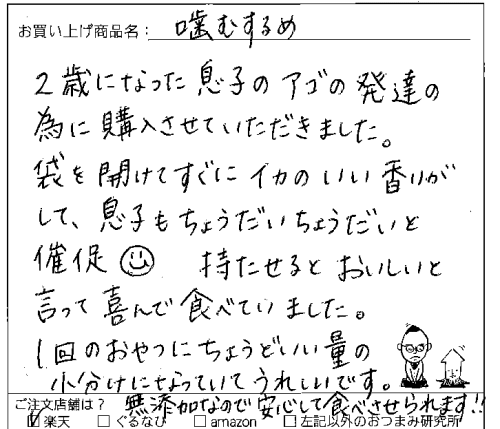 お買い上げ商品名： 噛むするめ
2歳になった息子のアゴの発達の
為に購入させていただきました。
袋を開けてすぐにイカのいい香りが
して、息子もちょうだいちょうだいと
催促 持たせるとおいしいと
言って喜んで食べていました。
1回のおやつにちょうどいい量の
小分けになっていてうれしいです。
無添加なので安心して食べさせられます!!
ご注文店舗は？
☑ 楽天 □ ぐるなび □ amazon □ 左記以外のおつまみ研究所